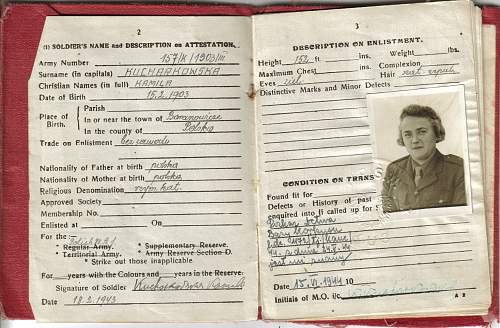 2
(1) SOLDIER'S NAME and DESCRIPTION on ATTESTATION.
Army Number 157/K/1903/III
Surname (in capitals) KUCHARKOWSKA
Christian Names (in full) KAMILA
Date of Birth 15.2.1903
Place of Birth.
Parish
In or near the town of Baranowicze
In the county of Polska
Trade on Enlistment bez zawodu
Nationality of Father at birth polska
Nationality of Mother at birth polska
Religious Denomination rzym. kat.
Approved Society
Membership No.
Enlisted at On
For the
* Regular Army. * Supplementary Reserve.
* Territorial Army. * Army Reserve Section D.
* Strike out those inapplicable
For years with the Colours and years in the Reserve.
Signature of Soldier Kucharkowska Kamila
Date 18.2.1943
3
DESCRIPTION ON ENLISTMENT.
Height ft. ins. Weight lbs.
Maximum Chest ins. Complexion
Eyes Hair
Distinctive Marks and Minor Defects
CONDITION ON TRANS
Found fit for
Defects or History of past
enquired into if called up for S
Date 15.VI.1944 10
Initials of M.O. i/c
A 2